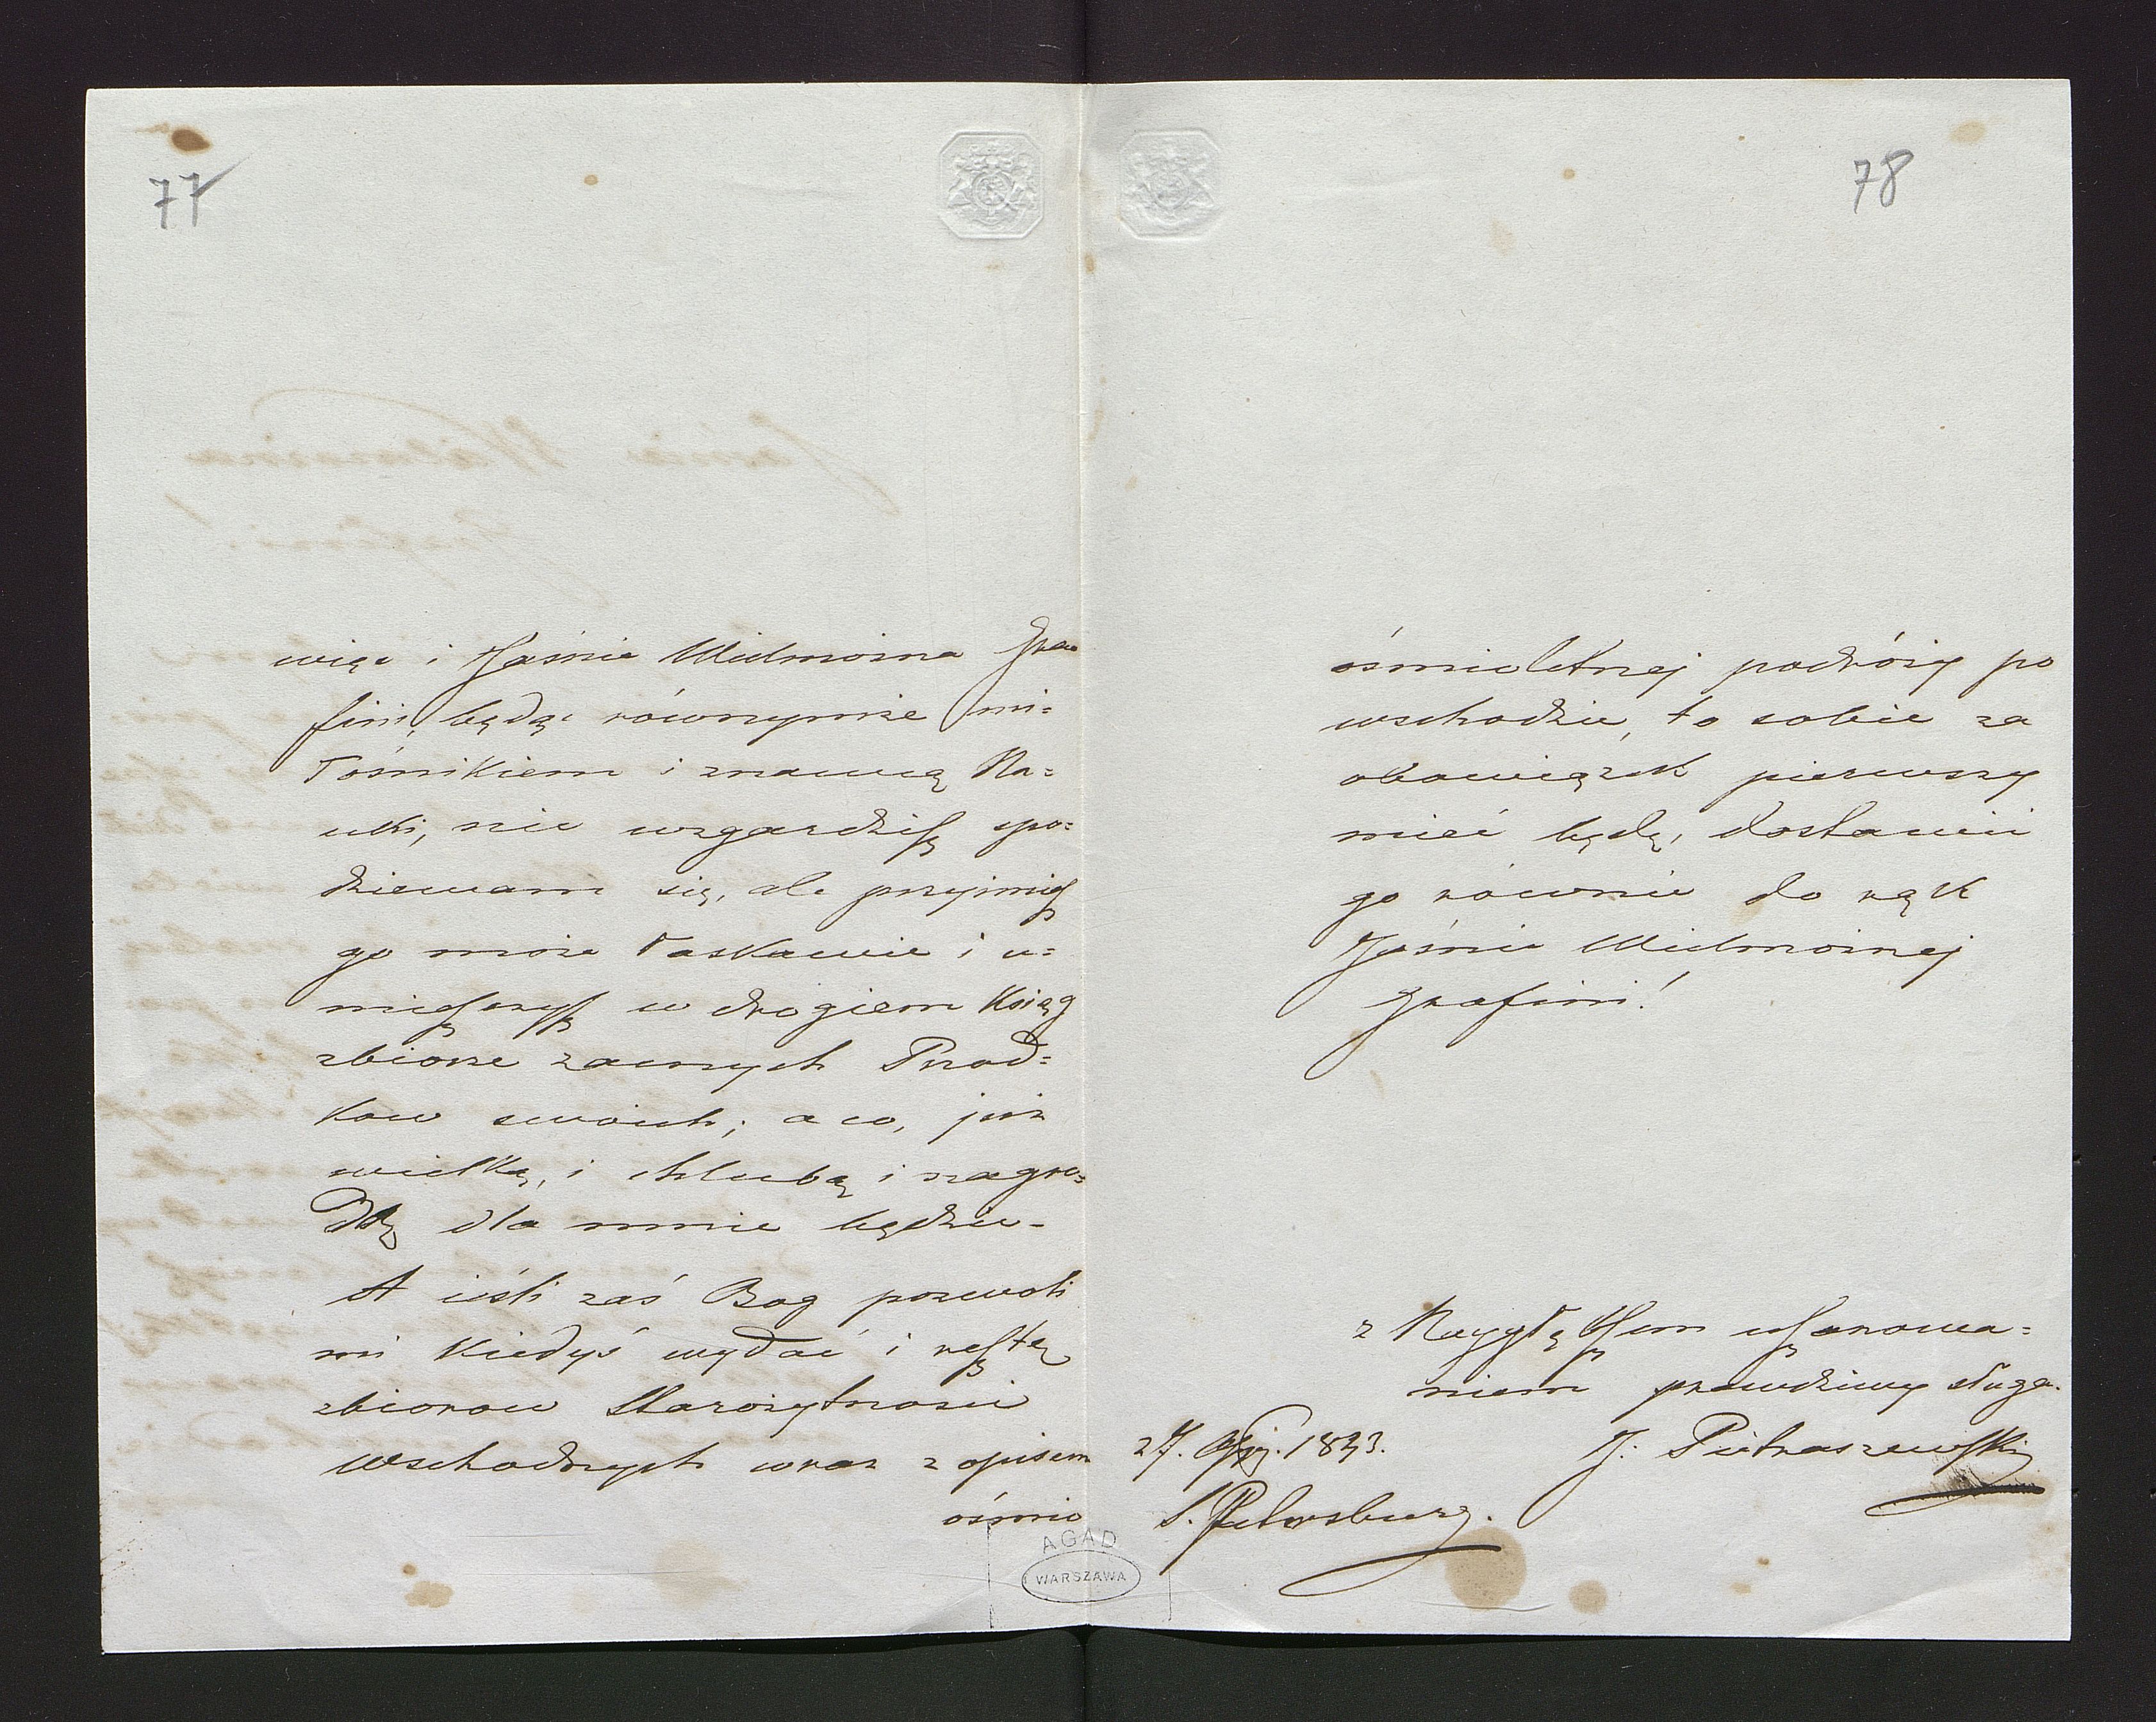 77
więc i Jaśnie Wielmożna Gra
fini, będąc równymże mi=
łośnikiem i znawcą Na=
uki, nie wzgardzisz spo=
dziewam się, ale przyjmiesz
go może łaskawie i u=
mieszczysz w drogiem Ksiąg
zbiorze zacnych Przod=
kow swoich; a co, już
wielką, i chlubą i nagro=
dą dla mnie będzie.
A jeśli zaś Bog pozwoli
mi kiedyś wydać i resztę
zbiorow Starożytności
Wschodnych wraz z opisem
ośmio
78
ośmioletnej podróży po
wschodzie, to sobie za
obowiązek pierwszy
mieć będę, dostawić
go równie do rąk
Jaśnie Wielmożnej
Grafini!
z Najgłębszem uszanowa=
niem prawdziwy sługa.
J: Pietraszewski
27. 1843.
S. Petersburg.
AGAD
WARSZAWA